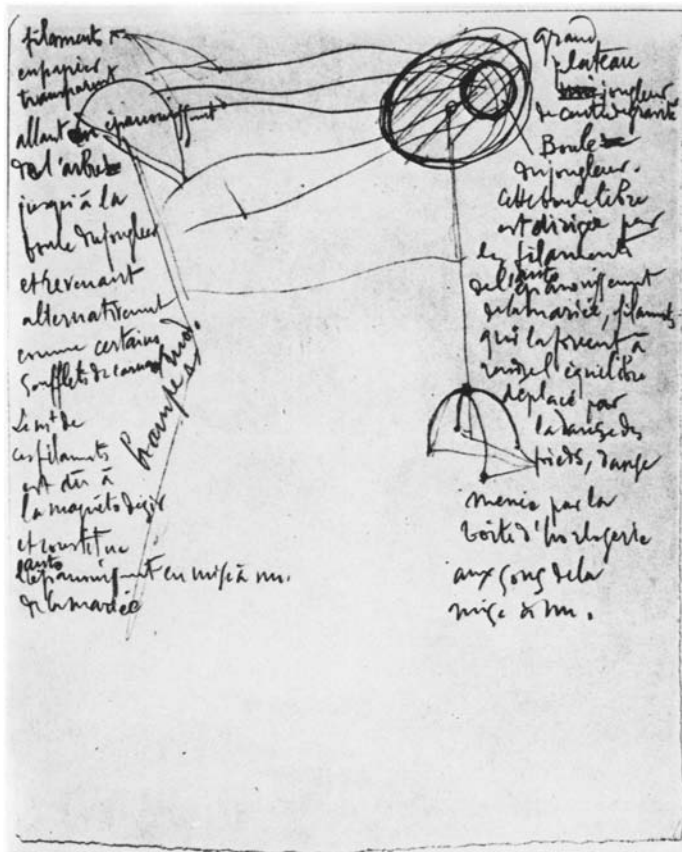 filaments
en papier
transparent
allant en épanouissement
de l'arbre
jusqu'à la
boule du jongleur
et revenant
alternativement
comme certains
soufflets de
Le mt de
ces filaments
est dû à
la magnéto désir
et constitue
auto
l'épanouissement en mise à nu.
de la mariée
hampe
grand
plateau
jongleur
de centre de gravité
Boule
du jongleur.
cette boule libre
est dirigée par
les filaments
auto
de l'épanouissement
de la mariée, filaments
qui la forcent à
équilibre
déplacé par
la danse des
pieds, danse
menée par la
boîte d'horlogerie
aux gongs de la
mise à nu.